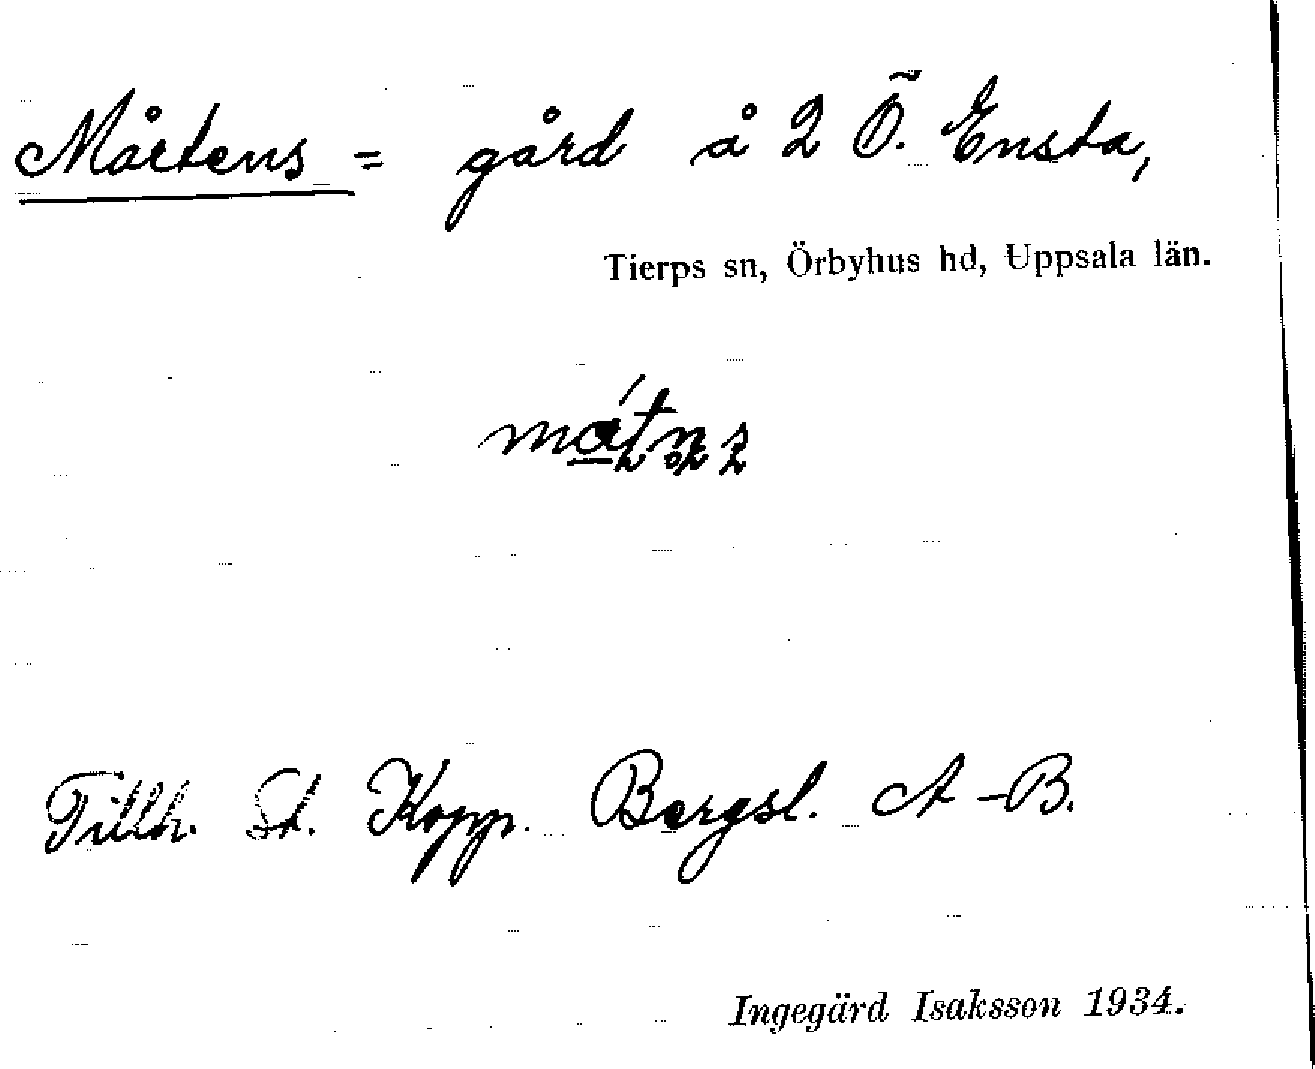 Mårtens = gård å 2 Ö. Ensta,
Tierps sn, Örbyhus hd, Uppsala län.
Tillh. St. Kopp. Bergsl. A-B.
Ingegärd Isaksson 1934.